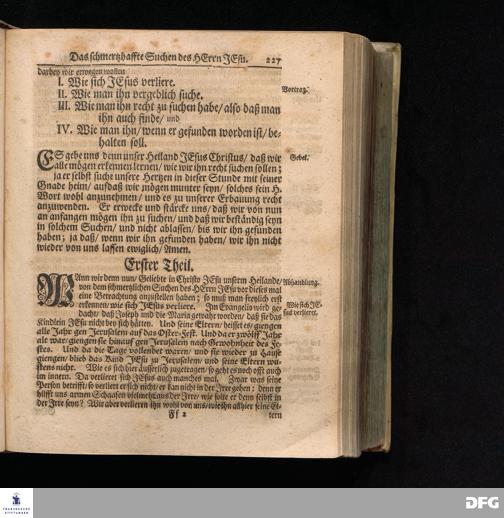 Das schmertzhaffte Suchen des HErrn JEsu. 227
darbey wir erwegen wollen
I. Wie sich JEsus verliere.
II. Wie man ihn vergeblich suche. Vortrag.
III. Wie man ihn recht zu suchen habe/ also daß man
ihn auch finde/ und
IV. Wie man ihn/ wenn er gefunden worden ist/ be-
halten soll.
ES gebe uns denn unser Heiland JEsus Christus/ daß wir Gebet.
alle mögen erkennen lernen/ wie wir ihn recht suchen sollen;
ja er selbst sucht unsere Hertzen in dieser Stunde mit seiner
Gnade heim/ aufdaß wir mögen munter seyn/ solches sein H.
Wort wohl anzunehmen/ und es zu unserer Erbauung recht
anzuwenden. Er erwecke und stärcke uns/ daß wir von nun
an anfangen mögen ihn zu suchen/ und daß wir beständig seyn
in solchem Suchen/ und nicht ablassen/ bis wir ihn gefunden
haben; ja daß/ wenn wir ihn gefunden haben/ wir ihn nicht
wieder von uns lassen ewiglich/ Amen.
Erster Theil.
WAnn wir denn nun/ Geliebte in Christo JEsu unserm Heilande/ Abhandlung.
von dem schmertzlichen Suchen des HErrn JEsu vor dieses mal
eine Betrachtung anzustellen haben; so muß man freylich erst
erkennen/ wie sich JEsus verliere. Im Evangelio wird ge- Wie sich JE-
dacht/ daß Joseph und die Maria gewahr worden/ daß sie das sus verlieret.
Kindlein JEsu nicht bey sich hätten. Und seine Eltern/ heisset es/ giengen
alle Jahr gen Jerusalem auf das Oster-Fest. Und da er zwölff Jahr
alt war/ giengen sie hinauf gen Jerusalem nach Gewohnheit des Fe-
stes. Und da die Tage vollendet waren/ und sie wieder zu Hause
giengen/ blieb das Kind JEsu zu Jerusalem/ und seine Eltern wu-
stens nicht. Wie es sich hier äusserlich zugetragen/ so geht es noch offt auch
im innern. Da verlieret sich JEsus auch manches mal. Zwar was seine
Person betrifft/ so verliert er sich nicht/ er kan nicht in der Irre gehen; denn er
hilfft uns armen Schaafen vielmehr aus der Irre/ wie solte er denn selbst in
der Irre seyn? Wir aber verlieren ihn wohl von uns/ wie ihn allhier seine El-
Ff 2 tern
DFG